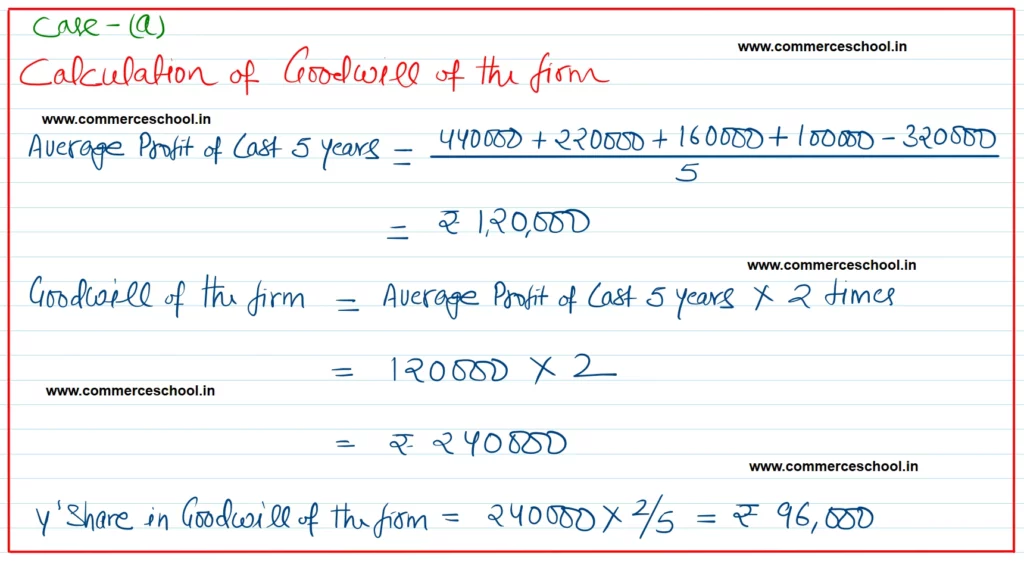 Case - (a)
www.commerceschool.in
Calculation of Goodwill of the firm
www.commerceschool.in
Average Profit of Last 5 years = 440000 + 220000 + 160000 + 100000 - 320000
5
= ₹ 1,20,000
www.commerceschool.in
Goodwill of the firm = Average Profit of Last 5 years × 2 times
= 120000 × 2
www.commerceschool.in
= ₹ 240000
www.commerceschool.in
Y' Share in Goodwill of the firm = 240000 × 2/5 = ₹ 96,000